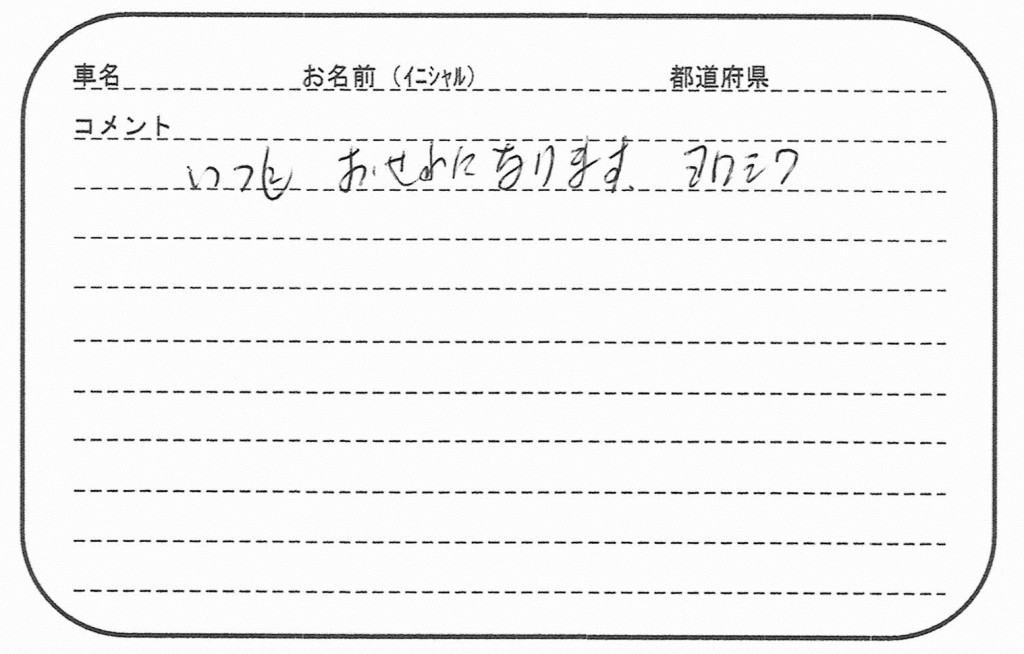 車名 お名前（ｲﾆｼｬﾙ） 都道府県
コメント
いつも おせわになります、ヨロシク